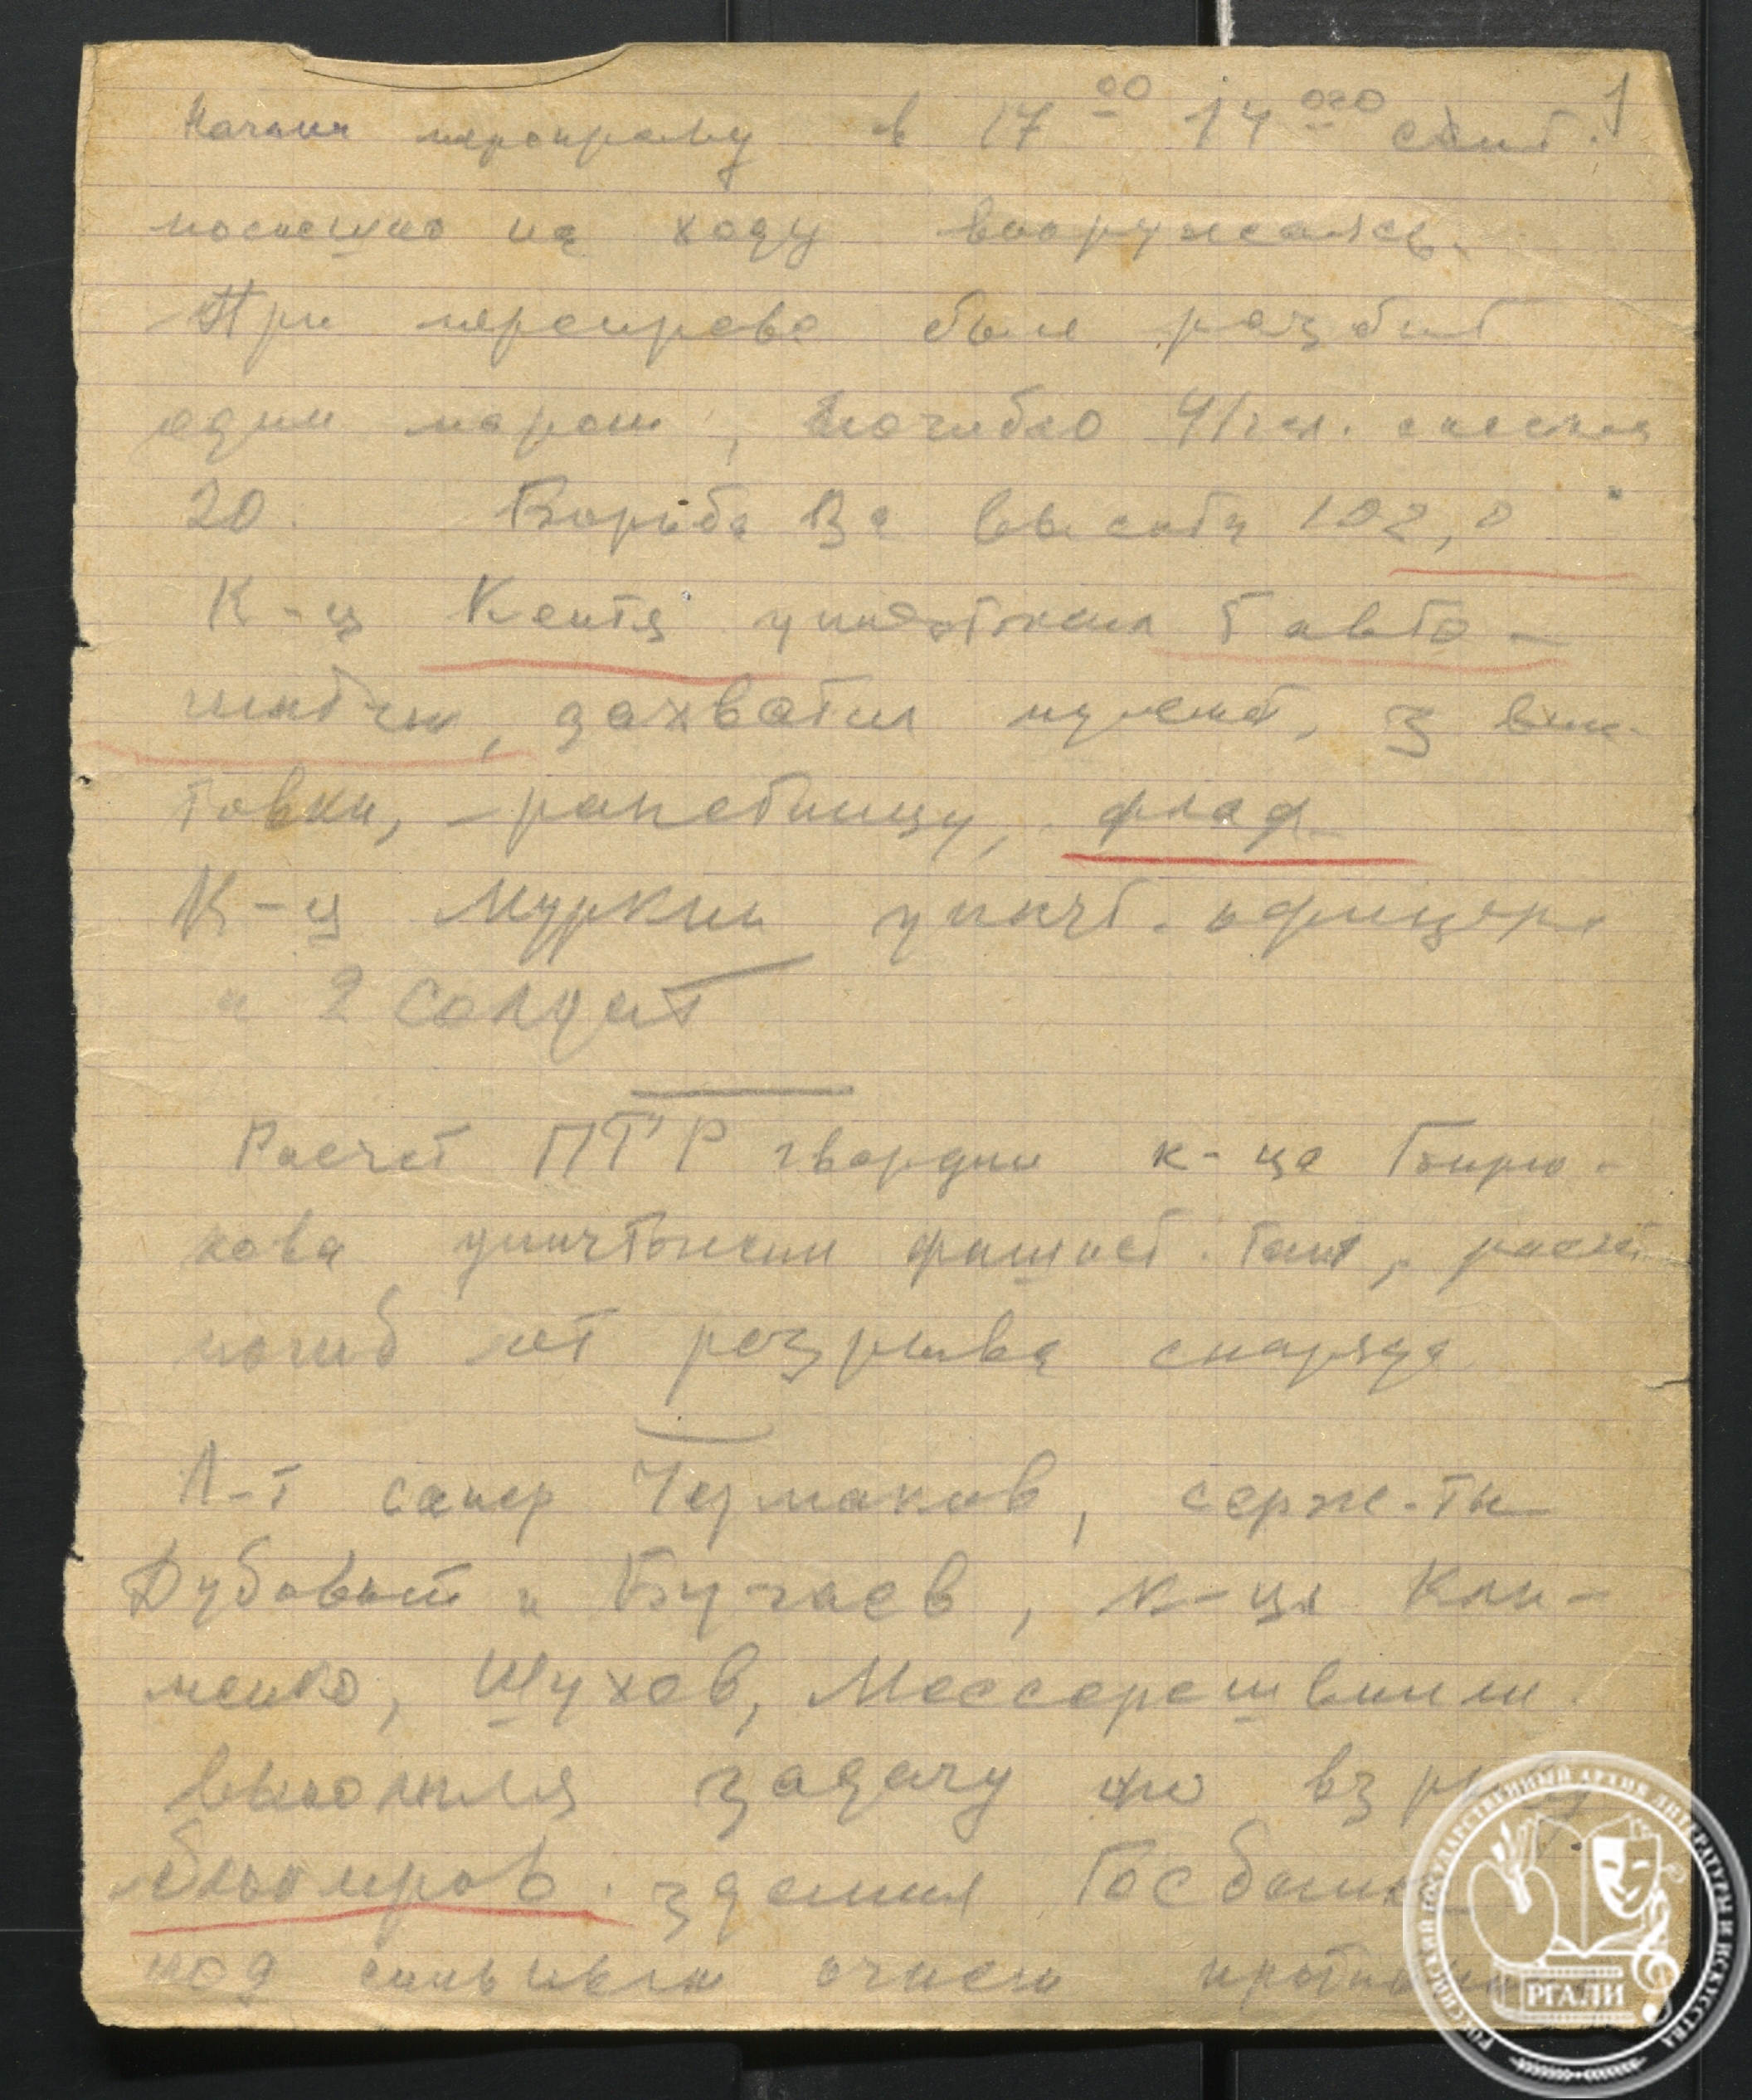 1
Начали переправу в 17 00 14 ого сент.
поспешно на ходу вооружаясь.
При переправе был разбит
один паром, погибло 41 чел. спаслись
20. Борьба за высоту 102,0
К-ц Кентя уничтожил 5 авто-
матчик, захватил пулемет, 3 вин-
товки, ракетницу, флаг.
К-ц Муркин уничт. офицера
и 2 солдат
Расчет ПТР гвардии к-ца Бирю-
кова уничтожил фашист. танк, расчет
погиб от разрыва снаряда
Л-т сапер Чермаков, серж-ты
Дубовый и Бугаев, к-цы Кли-
менко, Шухов, Мессерешвили
выполняя задачу по взрыву
блокиров. здания Госбанка
под сильным огнем противника
РОССИЙСКИЙ ГОСУДАРСТВЕННЫЙ АРХИВ ЛИТЕРАТУРЫ И ИСКУССТВА
РГАЛИ